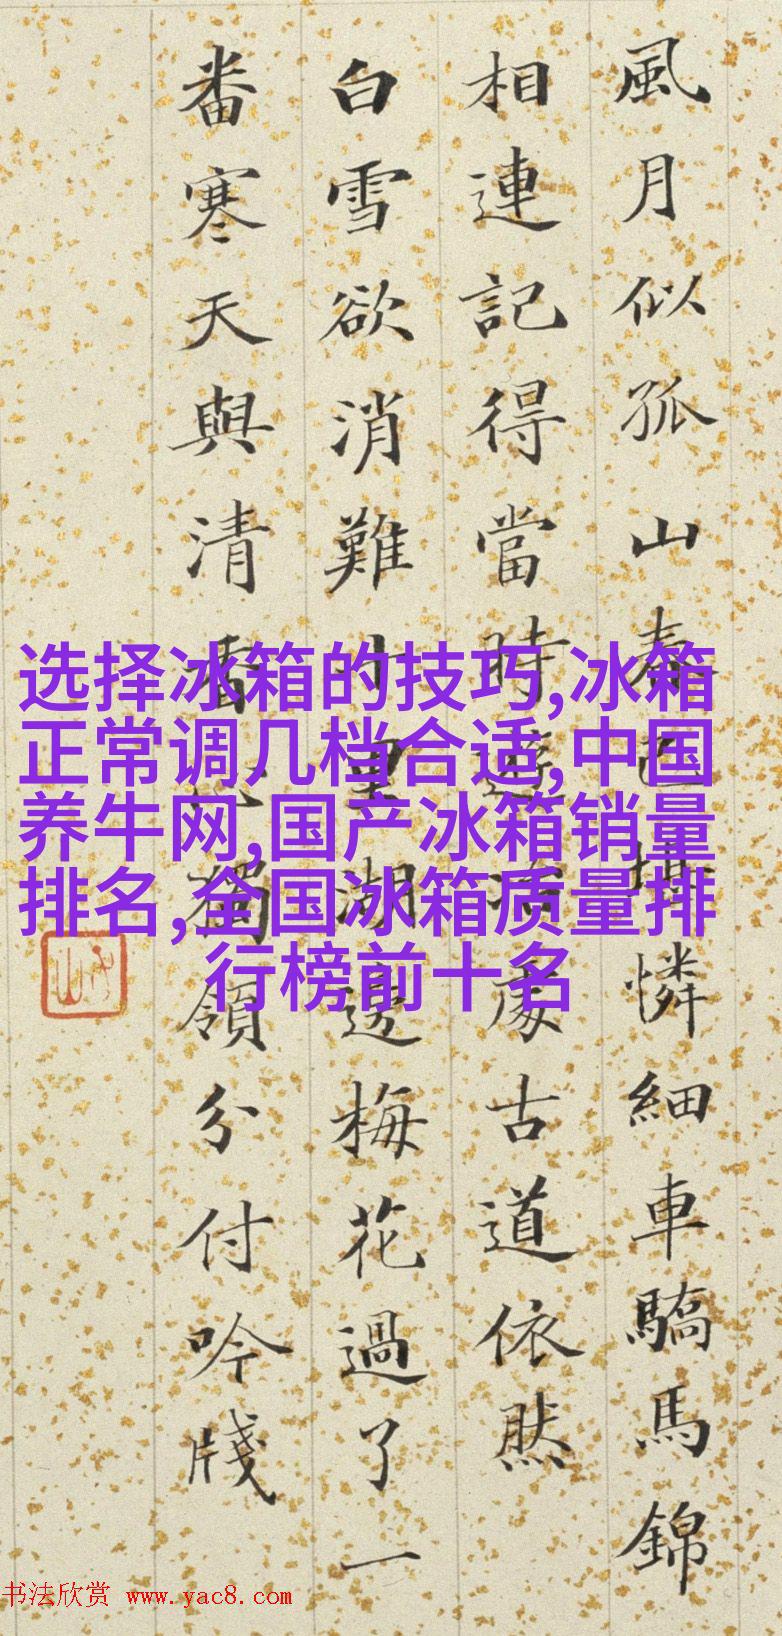 風月似孤山春色堪憐細車驕馬錦
相連記得當時遊冶處古道依然
白雪欲消難十里湖邊梅花過了一
番寒天與清香心獨領分付吟牋
选择冰箱的技巧,冰箱
正常调几档合适,中国
养牛网,国产冰箱销量
排名,全国冰箱质量排
行榜前十名
书法欣赏 www.yac8.com